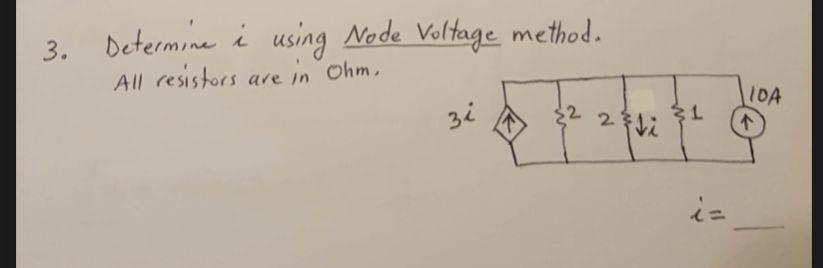 3. Determine i using Node Voltage method.
All resistors are in Ohm.
3i 2 2 i 1 10A
i =